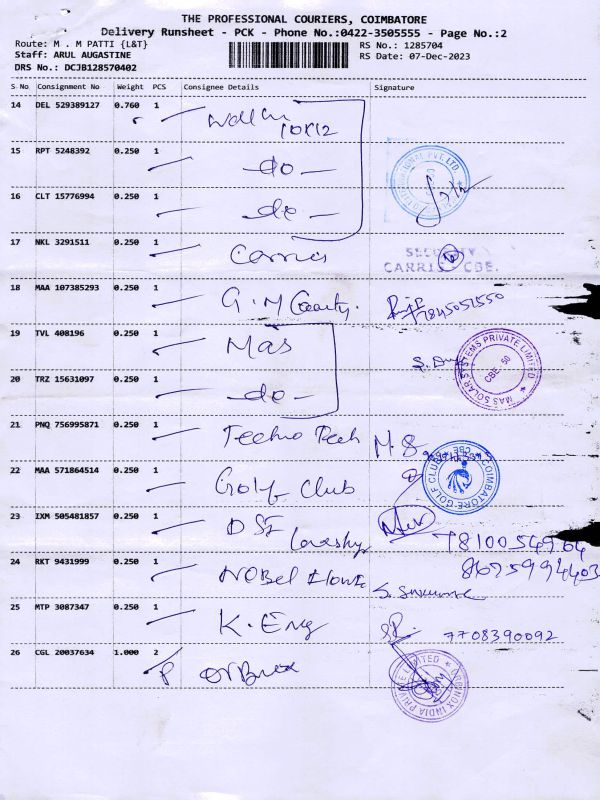 THE PROFESSIONAL COURIERS, COIMBATORE
Delivery Runsheet - PCK - Phone No.:0422-3505555 - Page No.:2
Route: M . M PATTI {L&T}
RS No.: 1285704
Staff: ARUL AUGASTINE
RS Date: 07-Dec-2023
DRS No.: DCJB128570402
S No Consignment No Weight PCS Consignee Details Signature
14 DEL 529389127 0.760 1
10812
15 RPT 5248392 0.250 1 - do -
PVT. LTD.
16 CLT 15776994 0.250 1 - do -
17 NKL 3291511 0.250 1 Carris
SECURITY
CARRIS - CBE.
18 MAA 107385293 0.250 1 G.M
19 TVL 408196 0.250 1 Mas
MAS SOLAR SYSTEMS PRIVATE LIMITED
CBE. 50
20 TRZ 15631097 0.250 1 - do -
21 PNQ 756995871 0.250 1 Techno Tech
22 MAA 571864514 0.250 1 Golf Club
COIMBATORE GOLF CLUB CBE
23 IXM 505481857 0.250 1 DSF
24 RKT 9431999 0.250 1 Nobel
25 MTP 3087347 0.250 1 K. Eng 7708390092
26 CGL 20037634 1.000 2
INDIA PRIVATE LIMITED